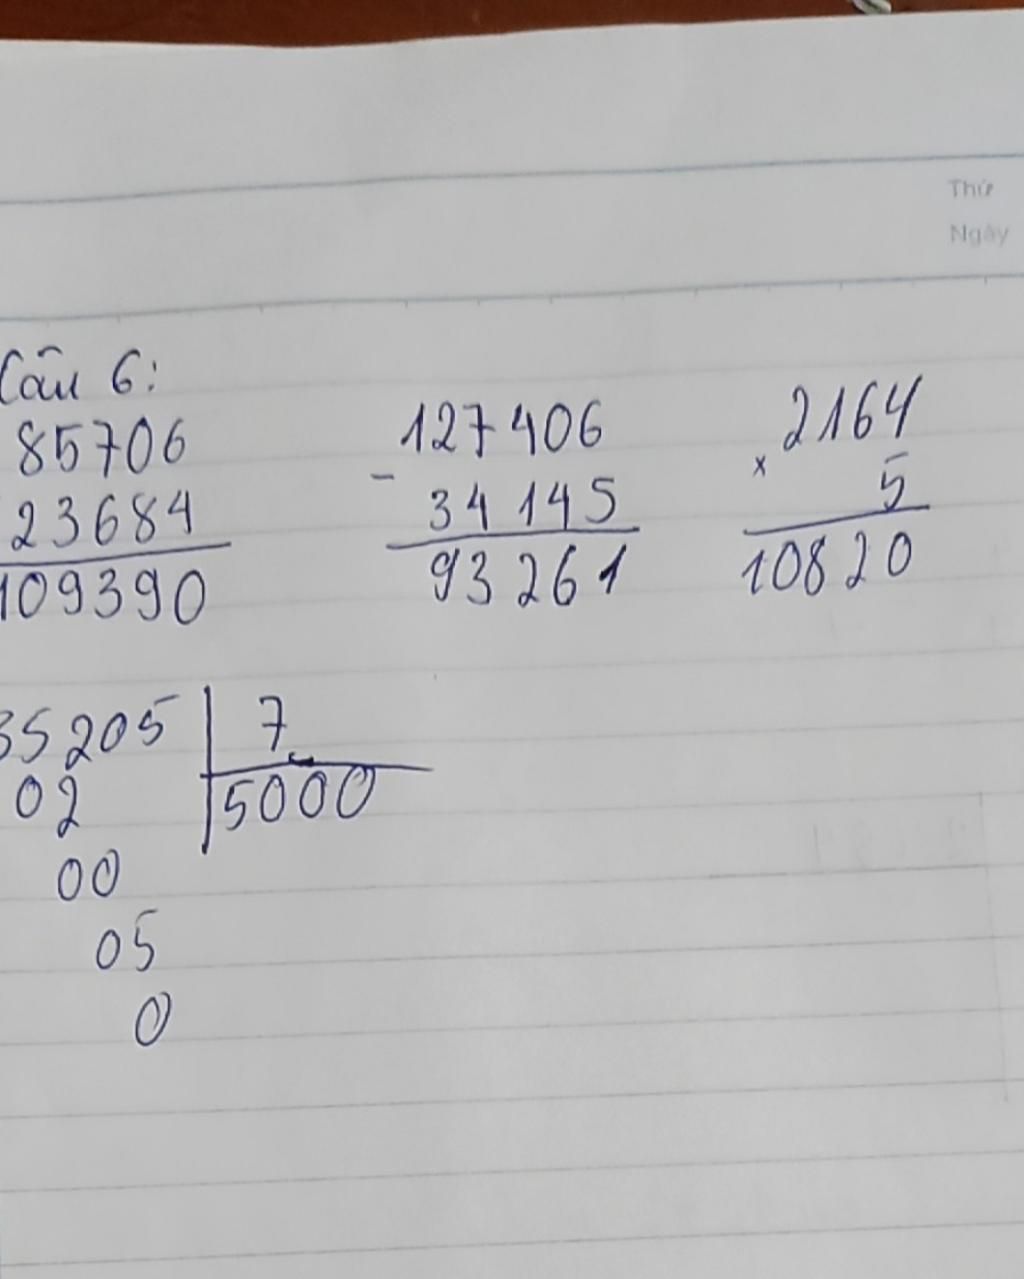 Thứ
Ngày
Câu 6:
85706
23684
109390
127406
-
34145
93261
2164
×
5
10820
35205 7
02 5000
00
05
0